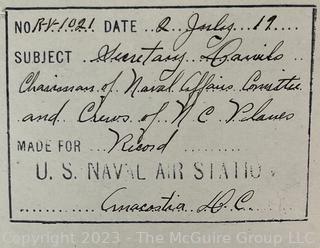 NO. RV.1021. DATE ..2..July..19..
SUBJECT ..Secretary..Daniels..
Chairman.of.Naval.Affairs.Committee
and..Crews..of..N.C.Planes
MADE FOR ....Record............
U. S. NAVAL AIR STATION
............Anacostia..D.C.......
Copyright 2023 - The McGuire Group LLC